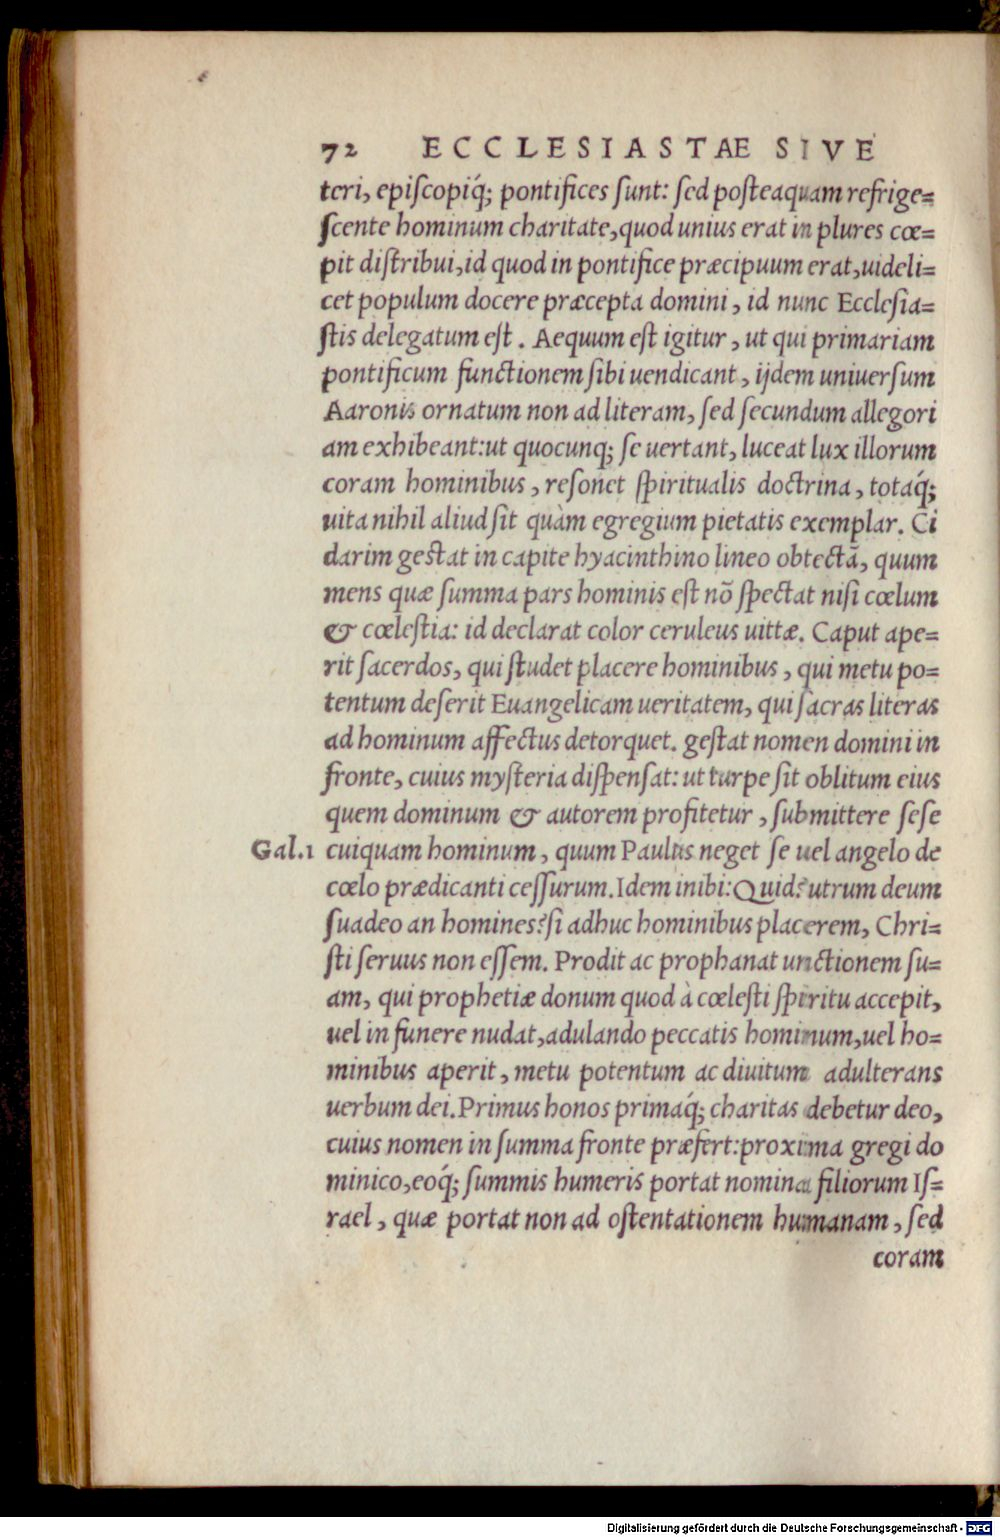 72 ECCLESIASTAE SIVE
teri, episcopiq́; pontifices sunt: sed posteaquam refrige=
scente hominum charitate, quod unius erat in plures cœ=
pit distribui, id quod in pontifice præcipuum erat, uideli=
cet populum docere præcepta domini, id nunc Ecclesia=
stis delegatum est. Aequum est igitur, ut qui primariam
pontificum functionem sibi uendicant, ijdem uniuersum
Aaronis ornatum non ad literam, sed secundum allegori
am exhibeant: ut quocunq; se uertant, luceat lux illorum
coram hominibus, resonet spiritualis doctrina, totaq́;
uita nihil aliud sit quàm egregium pietatis exemplar. Ci
darim gestat in capite hyacinthino lineo obtectã, quum
mens quæ summa pars hominis est nõ spectat nisi cœlum
& cœlestia: id declarat color ceruleus uittæ. Caput ape=
rit sacerdos, qui studet placere hominibus, qui metu po=
tentum deserit Euangelicam ueritatem, qui sacras literas
ad hominum affectus detorquet. gestat nomen domini in
fronte, cuius mysteria dispensat: ut turpe sit oblitum eius
quem dominum & autorem profitetur, submittere sese
Gal.1 cuiquam hominum, quum Paulus neget se uel angelo de
cœlo prædicanti cessurum. Idem inibi: Quid? utrum deum
suadeo an homines? si adhuc hominibus placerem, Chri=
sti seruus non essem. Prodit ac prophanat unctionem su=
am, qui prophetiæ donum quod à cœlesti spiritu accepit,
uel in funere nudat, adulando peccatis hominum, uel ho=
minibus aperit, metu potentum ac diuitum adulterans
uerbum dei. Primus honos primaq́; charitas debetur deo,
cuius nomen in summa fronte præfert: proxima gregi do
minico, eoq́; summis humeris portat nomina filiorum Is=
rael, quæ portat non ad ostentationem humanam, sed
coram
Digitalisierung gefördert durch die Deutsche Forschungsgemeinschaft - DFG